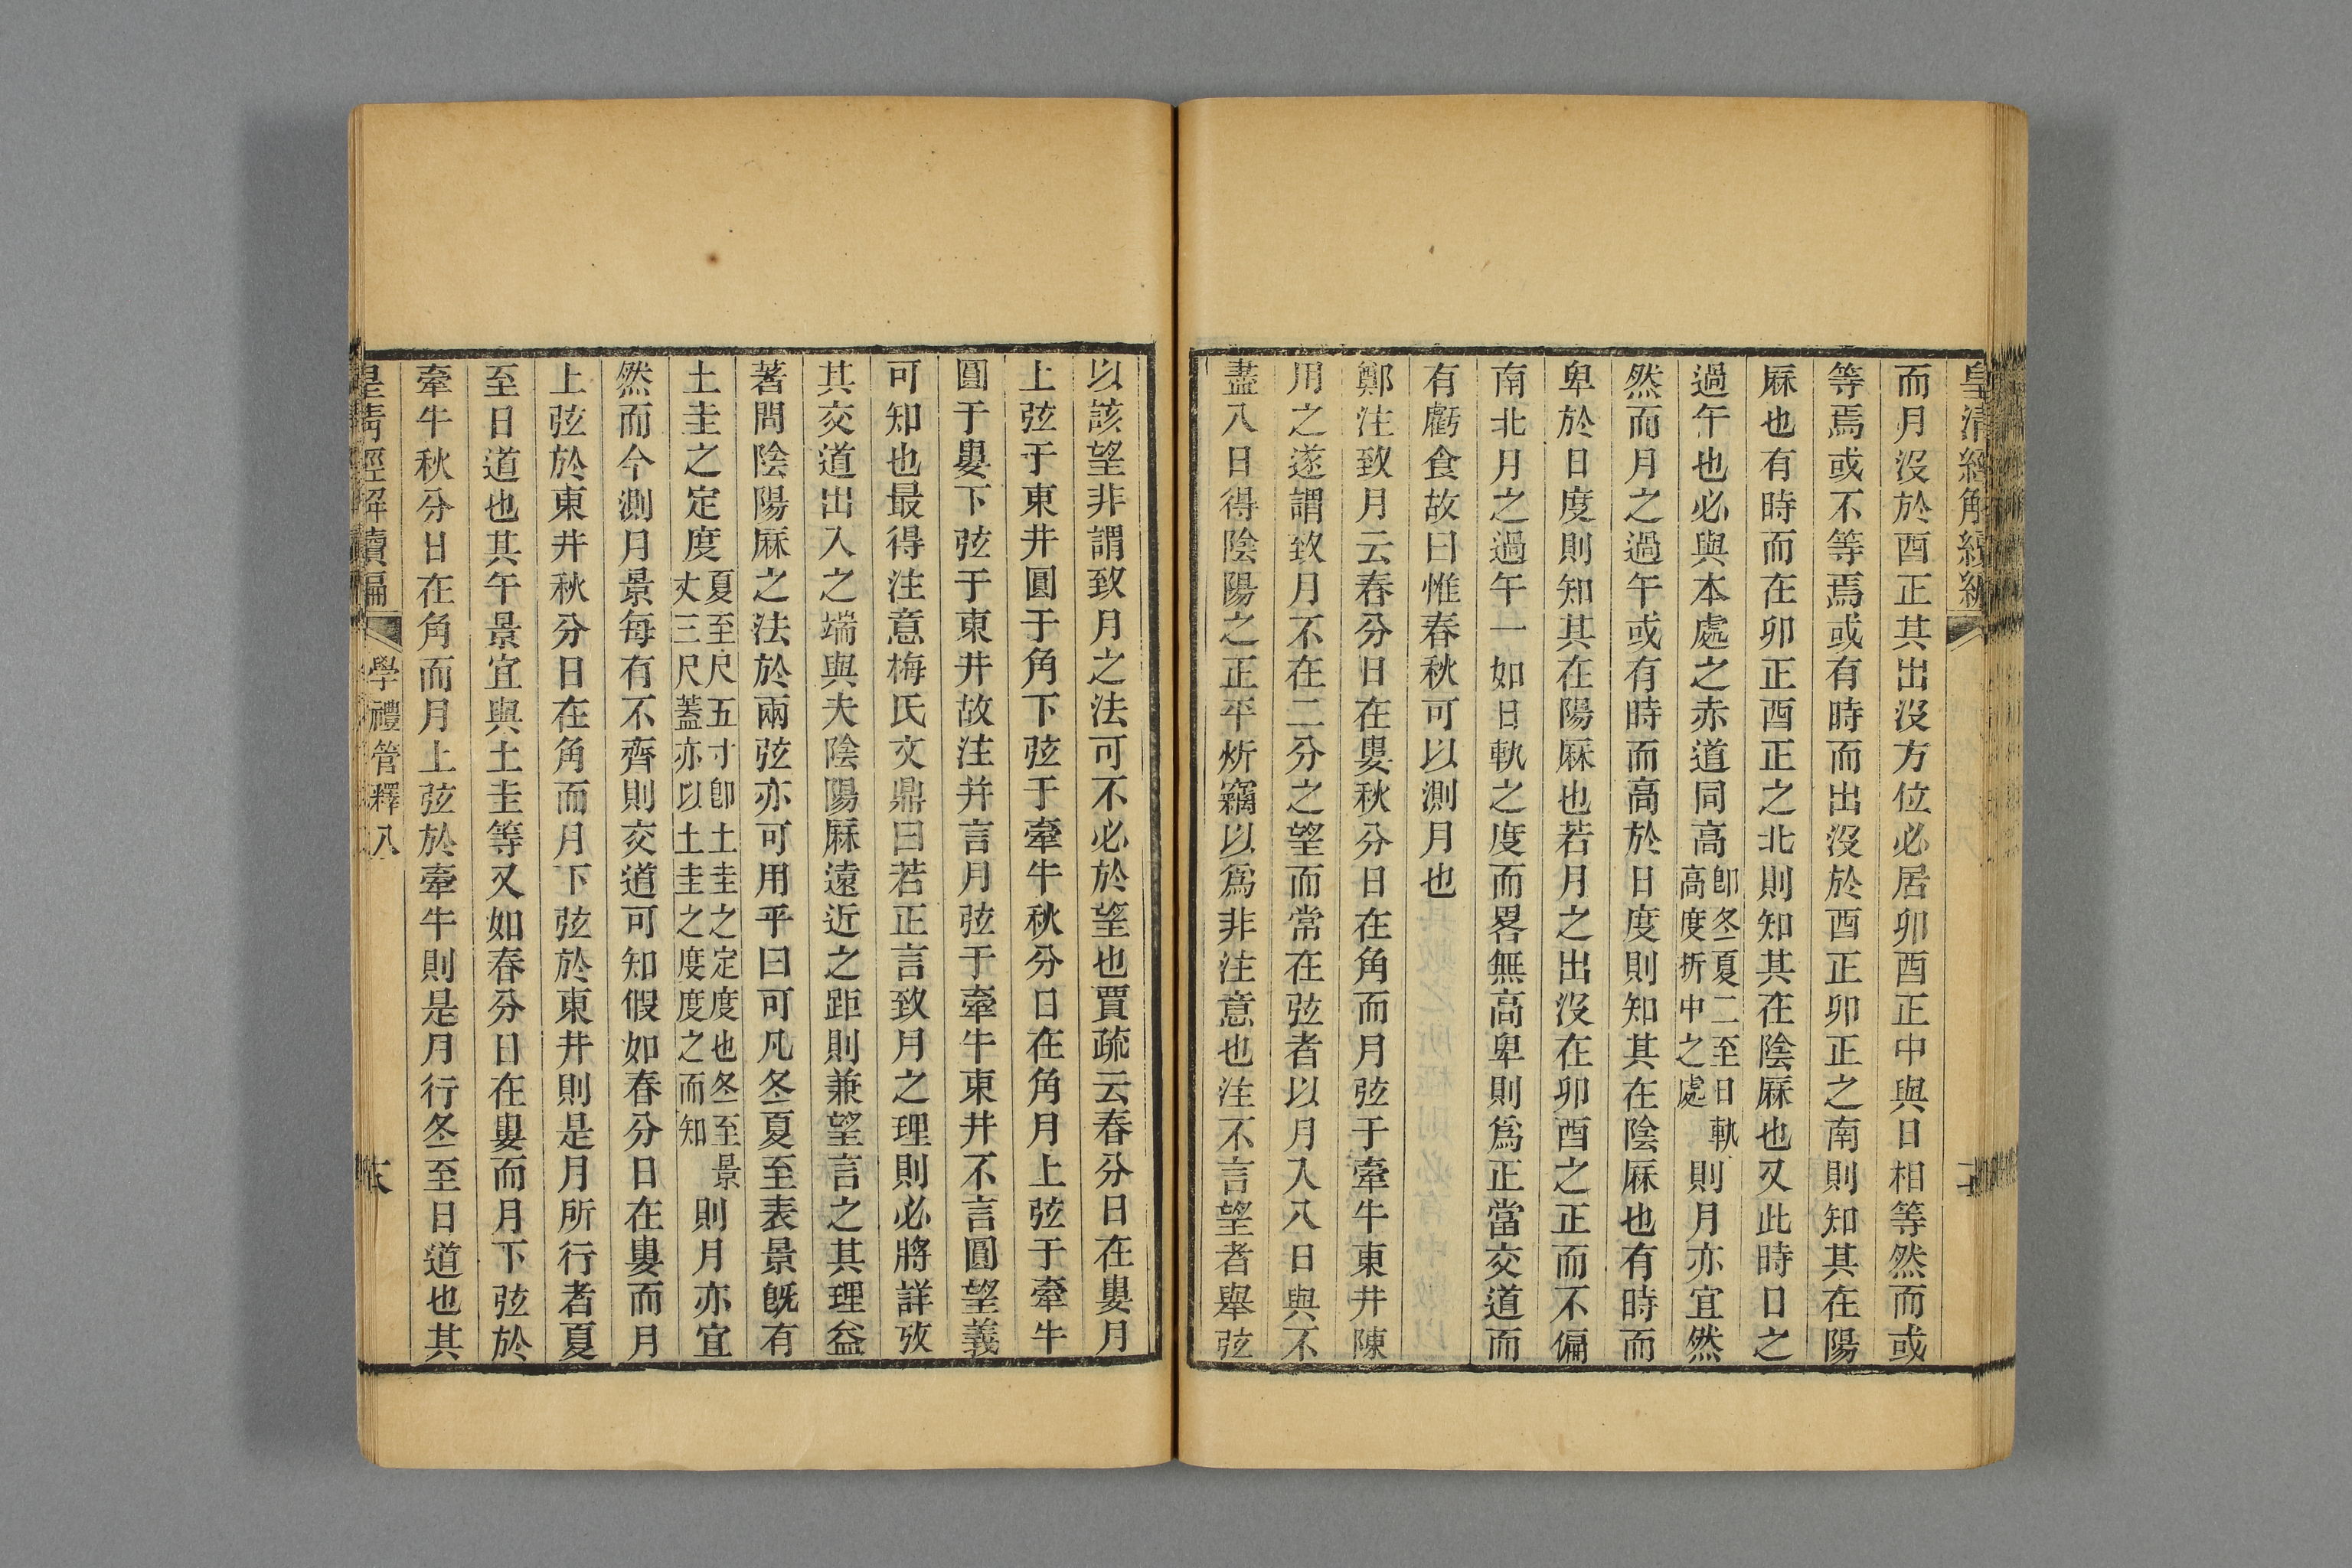 皇清經解續編
而月沒於酉正其出沒方位必居卯酉正中與日相等然而或
等焉或不等焉或有時而出沒於酉正卯正之南則知其在陽
厤也有時而在卯正酉正之北則知其在陰厤也又此時日之
過午也必與本處之赤道同高卽冬夏二至日軌高度折中之處則月亦宜然
然而月之過午或有時而高於日度則知其在陰厤也有時而
卑於日度則知其在陽厤也若月之出沒在卯酉之正而不偏
南北月之過午一如日軌之度而畧無高卑則爲正當交道而
有虧食故曰惟春秋可以測月也
鄭注致月云春分日在婁秋分日在角而月弦于牽牛東井陳
用之遂謂致月不在二分之望而常在弦者以月入八日與不
盡八日得陰陽之正平炘竊以爲非注意也注不言望者舉弦
以該望非謂致月之法可不必於望也賈疏云春分日在婁月
上弦于東井圓于角下弦于牽牛秋分日在角月上弦于牽牛
圓于婁下弦于東井故注并言月弦于牽牛東井不言圓望義
可知也最得注意梅氏文鼎曰若正言致月之理則必將詳攷
其交道出入之端與夫陰陽厤遠近之距則兼望言之其理益
著問陰陽厤之法於兩弦亦可用乎曰可凡冬夏至表景旣有
土圭之定度夏至尺五寸卽土圭之定度也冬至景丈三尺蓋亦以土圭之度度之而知則月亦宜
然而今測月景每有不齊則交道可知假如春分日在婁而月
上弦於東井秋分日在角而月下弦於東井則是月所行者夏
至日道也其午景宜與土圭等又如春分日在婁而月下弦於
牽牛秋分日在角而月上弦於牽牛則是月行冬至日道也其
皇清經解續編
學禮管釋八